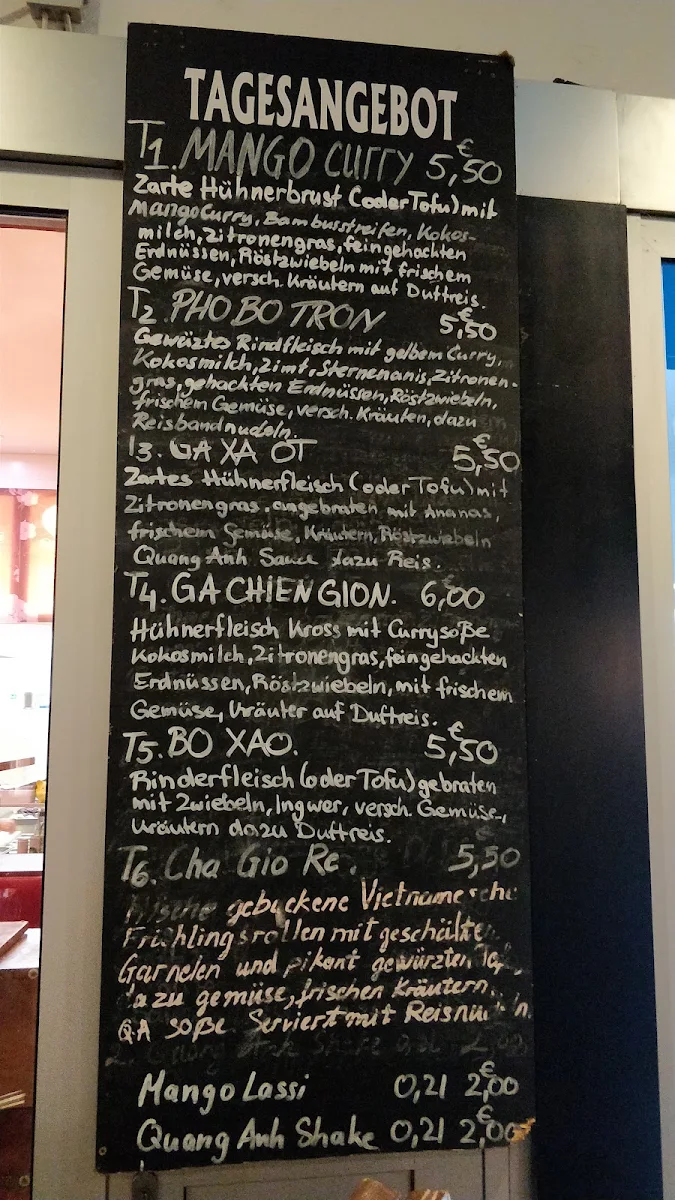 TAGESANGEBOT
T1. MANGO CURRY 5,50 €
Zarte Hühnerbrust (oder Tofu) mit
Mango Curry, Bambusstreifen, Kokos-
milch, Zitronengras, fein gehackten
Erdnüssen, Röstzwiebeln mit frischem
Gemüse, versch. Kräutern auf Duftreis.
T2 PHO BO TRON 5,50 €
Gewürztes Rindfleisch mit gelbem Curry,
Kokosmilch, Zimt, Sternenanis, Zitronen-
gras, gehackten Erdnüssen, Röstzwiebeln,
frischem Gemüse, versch. Kräuten, dazu
Reisbandnudeln.
T3. GA XA OT 5,50 €
Zartes Hühnerfleisch (oder Tofu) mit
Zitronengras, angebraten mit Ananas,
frischem Gemüse, Kräutern, Röstzwiebeln
Quang Anh Sauce dazu Reis.
T4. GA CHIEN GION. 6,00 €
Hühnerfleisch Kross mit Currysoße
Kokosmilch, Zitronengras, fein gehackten
Erdnüssen, Röstzwiebeln, mit frischem
Gemüse, Kräuter auf Duftreis.
T5. BO XAO. 5,50 €
Rinderfleisch (oder Tofu) gebraten
mit Zwiebeln, Ingwer, versch. Gemüse,
Kräutern dazu Duftreis.
T6. Cha Gio Re. 5,50
gebackene Vietnamesche
Frühlingsrollen mit geschälten
Garnelen und pikant gewürzten
dazu gemüse, frischen Kräutern.
QA soße Serviert mit
Mango Lassi 0,2l 2,00 €
Quang Anh Shake 0,2l 2,00 €